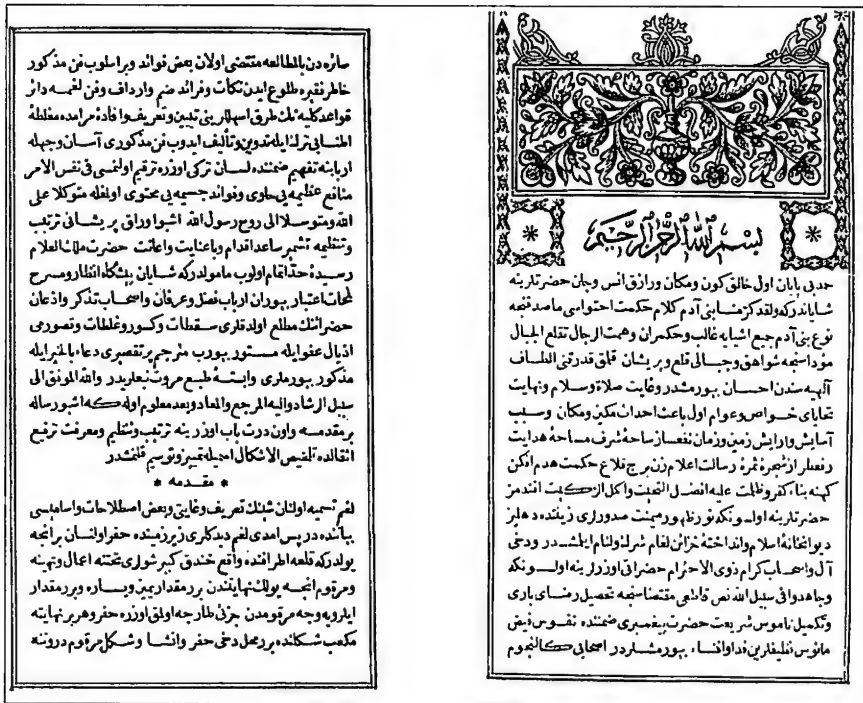 بسم الله الرحمن الرحيم
حمد بی پایان اول خالق کون ومکان ورازق انس وجان حضرتلرینه
شایاندرکه ولقد کرمنا بنی آدم کلام حکمت احتواسی ماصدقنجه
نوع بنی آدم جمیع اشیایه غالب وحکمران وهمت الرجال تقلع الجبال
مؤداسنجه شواهق وجبالی قلع وپریشان قلمق قدرتنی الطاف
آلهیه سندن احسان بیورمشدر وغایت صلاة وسلام ونهایت
تحایای خواص وعوام اول باعث احداث مکین ومکان وسبب
آسایش وارایش زمین وزمان
شجره ثمره رسالت اعلام زن برج قلاع حکمت هدم افکن
کهنه بناء کفر وظلمت علیه افضل التحیت واکل افندمز
حضرتلرینه اولسونکه نور ظهور میمنت صدورلری
دیوانخانه اسلام وانداخته خزائن لغام شرك
آل واصحاب کرام ذوی الاحترام حضراتی اوزرلرینه اولسونکه
وجاهدوا فی سبیل الله نص قاطعی مقتضاسنجه تحصیل رضای باری
وتکمیل ناموس شریعت حضرت پیغمبری ضمننده نفوس فیض
مأنوس نظیفلرین فدا وافنا بیورمشلردر اصحابی کالنجوم
سائره دن بالمطالعه مقتضی اولان بعض فوائد وبر اسلوب فن مذکور
خاطر فقیره طلوع ایدن نکات وفرائد ضم وارداف وفن لغمه دائر
قواعد کلیه نك طرق اسهللرینی تبیین وتعریف وافاده مرامده مغلطه
اطنابی ترك ایله تدوین وتألیف ایدوب فن مذکوری آسان وجهله
اربابنه تفهیم ضمننده لسان ترکی اوزره ترقیم اولنمسی فی نفس الامر
منافع عظیمه یی حاوی وفوائد جسیمه یی محتوی اولمغله متوکلا علی
الله ومتوسلا الی روح رسول الله اشبو اوراق پریشانی ترتیب
وتنظیمه تشمیر ساعد اقدام وباعنایت واعانت حضرت ملك العلام
رسیده حد اتمام اولوب مأمولدرکه شایان پیشگاه انظار ومسرح
لمحات اعتبار بیوران ارباب فضل وعرفان واصحاب تذکر واذعان
حضراتنك مطلع اولدقلری سقطات وکسور وغلطات وقصورمی
اذیال عفو ایله مستور بیورب مترجم پرتقصیری دعاء بالخیر ایله
مذکور بیورملری وابسته طبع مروت والله الموفق الی
سبیل الرشاد والیه المرجع والمعاد وبعد معلوم اوله که اشبو رساله
بر مقدمه واون درت باب اوزرینه ترتیب وتنظیم ومعرفت ترفیع
اثقالده تلخیص الاشکال اسمیله تمییز وتوسیم قلنمشدر
* مقدمه *
لغم تسمیه اولنان شیئك تعریف وغایتی وبعض اصطلاحات واسامیسی
بیاننده در پس امدی لغم دیدکلری زیر زمینده حفر اولنسان برانجه
یولدرکه قلعه اطرافنده واقع خندق کبر شوالری تحتنه اعمال وتهیئه
ومرقوم انجه یولك نهایتندن بر مقدار یمین ویساره وبر مقدار
ایلرویه وجه مرقومدن جزئی طارجه اولق اوزره حفر وهر بر نهایتنه
مکعب شکلنده بر محل دخی حفر وانشا وشکل مرقوم دروننه